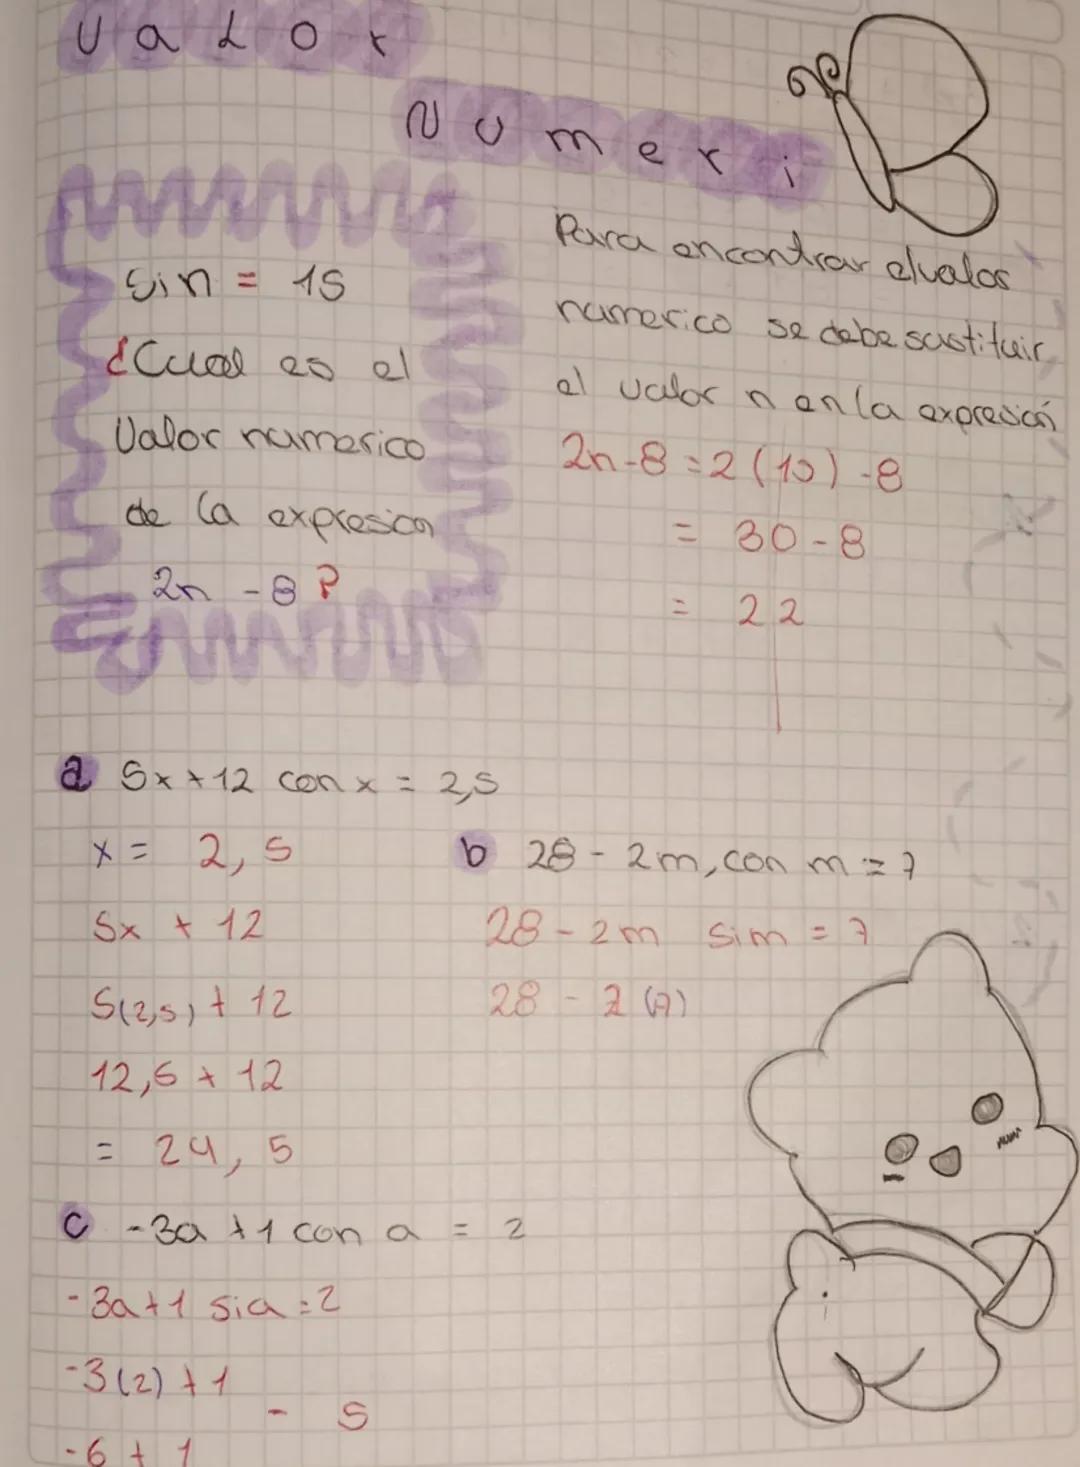 Valor
Numeri
Si n = 15
¿Cual es el
Valor numerico
de la expresion
2n - 8?
Para encontrar el valor
numerico se debe sustituir
el valor n en la expresión
2n - 8 = 2 (15) - 8
= 30 - 8
= 22
a 5x + 12 con x = 2,5
x = 2,5
5x + 12
5(2,5) + 12
12,5 + 12
= 24,5
b 28 - 2m, con m = 7
28 - 2m si m = 7
28 - 2 (7)
c -3a + 1 con a = 2
-3a + 1 si a = 2
-3(2) + 1
-6 + 1
- 5